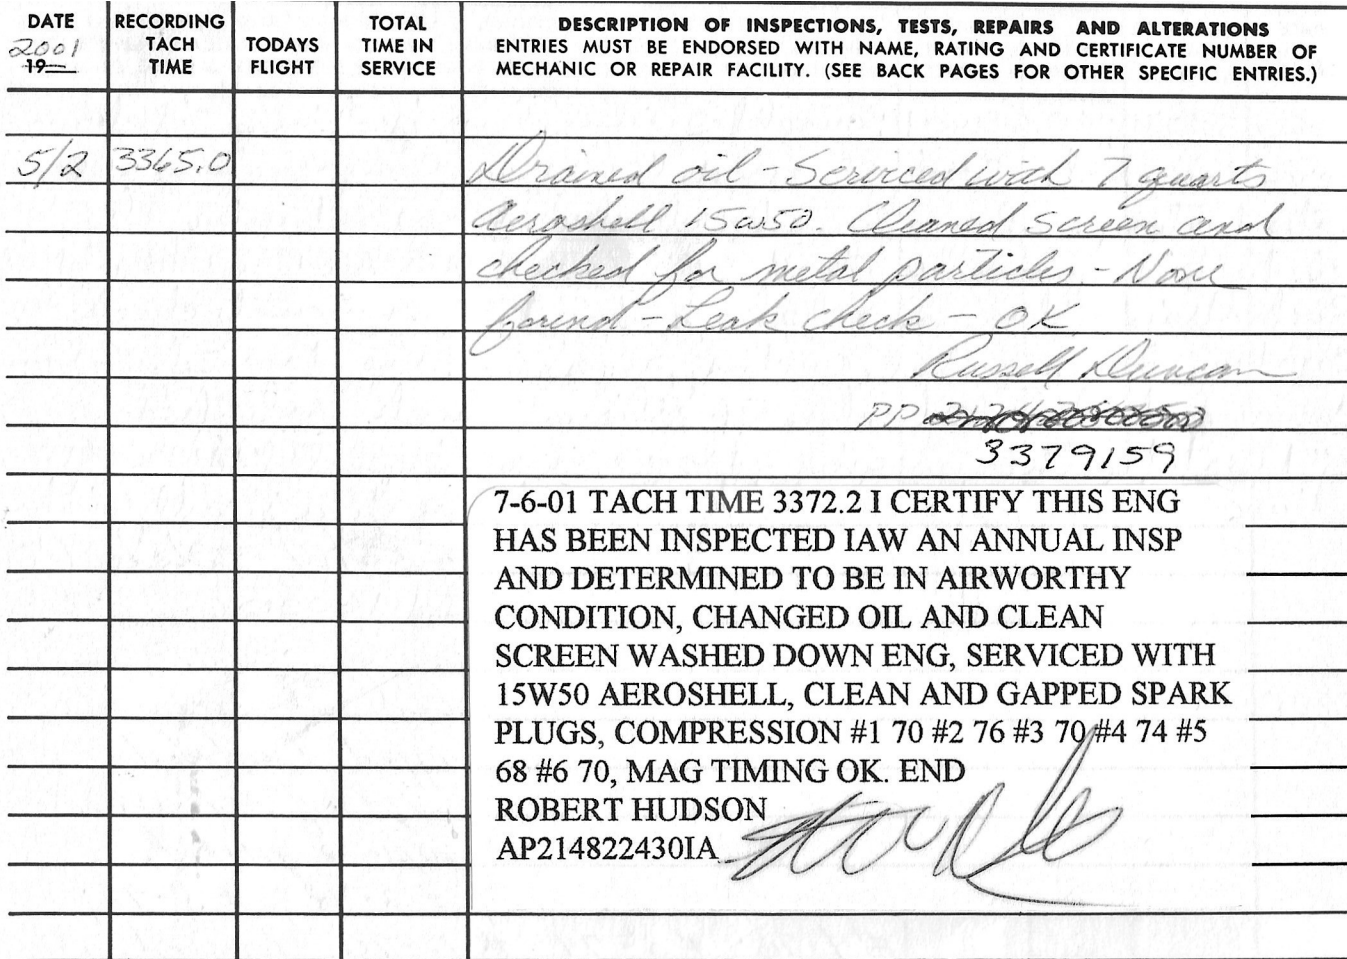 DATE
2001
19
RECORDING
TACH
TIME
TODAYS
FLIGHT
TOTAL
TIME IN
SERVICE
DESCRIPTION OF INSPECTIONS, TESTS, REPAIRS AND ALTERATIONS
ENTRIES MUST BE ENDORSED WITH NAME, RATING AND CERTIFICATE NUMBER OF
MECHANIC OR REPAIR FACILITY. (SEE BACK PAGES FOR OTHER SPECIFIC ENTRIES.)
5/2 3365.0 Drained oil - Serviced with 7 quarts
Aeroshell 15w50. Cleaned screen and
checked for metal particles - None
found - Leak check - OK
Russell Duncan
PP
3379159
7-6-01 TACH TIME 3372.2 I CERTIFY THIS ENG
HAS BEEN INSPECTED IAW AN ANNUAL INSP
AND DETERMINED TO BE IN AIRWORTHY
CONDITION, CHANGED OIL AND CLEAN
SCREEN WASHED DOWN ENG, SERVICED WITH
15W50 AEROSHELL, CLEAN AND GAPPED SPARK
PLUGS, COMPRESSION #1 70 #2 76 #3 70 #4 74 #5
68 #6 70, MAG TIMING OK. END
ROBERT HUDSON
AP214822430IA